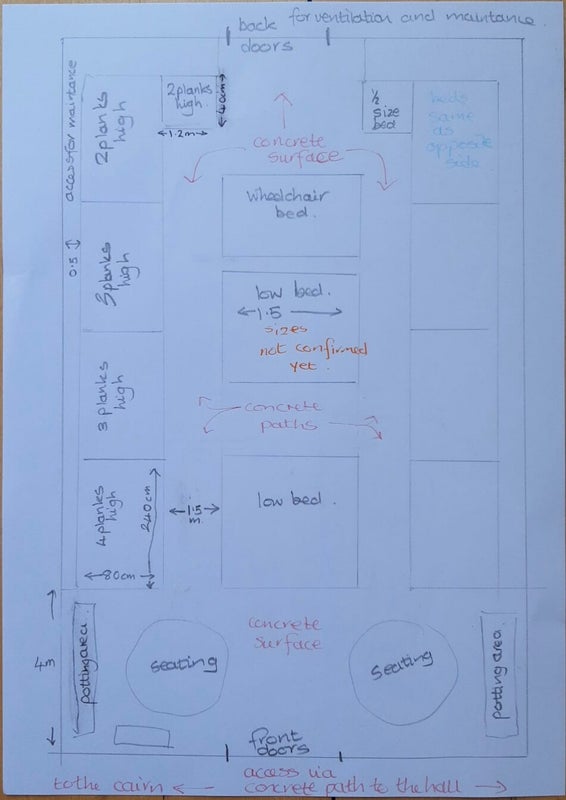 back for ventilation and maintance.
doors
access for maintance
2 planks
high
2 planks
high.
40cm
1.2m
½
size
bed
beds
same
as
opposite
side
concrete
surface
wheelchair
bed.
0.5
5 planks
high
low bed.
1.5
sizes
not confirmed
yet.
3 planks
high
concrete
paths
4 planks
high
240cm
80cm
1.5
m.
low bed.
4m
potting area.
seating
concrete
surface
seating
potting area
front
doors
access via
to the cairn concrete path to the hall